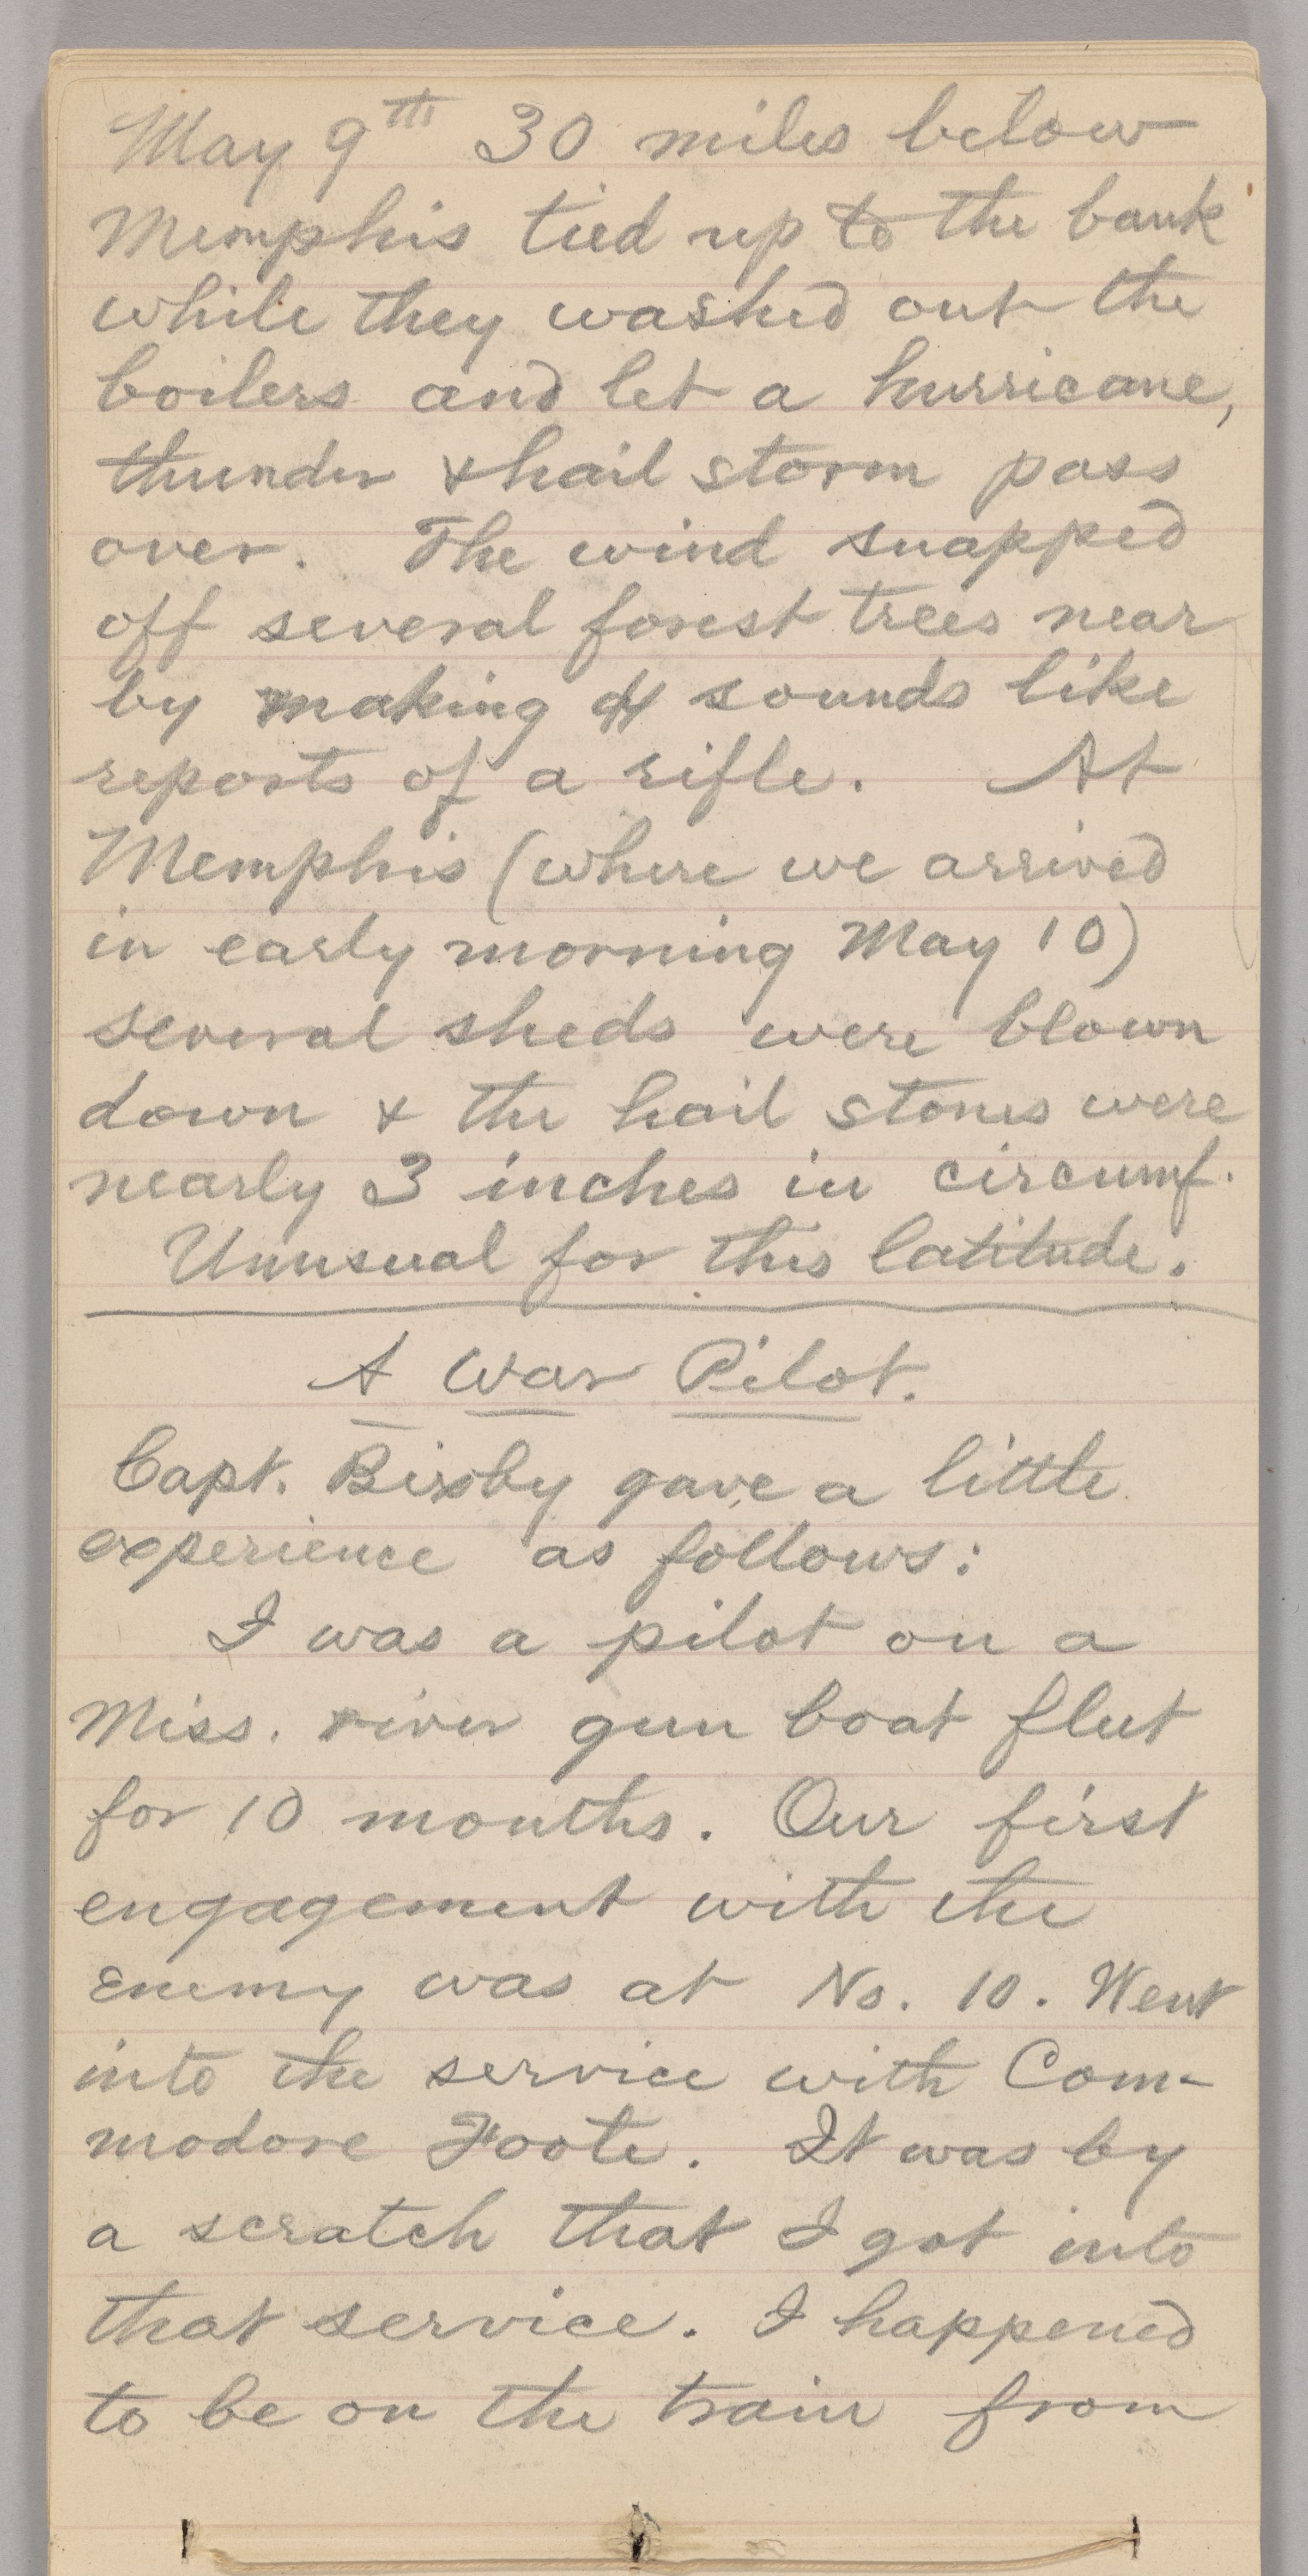 May 9th 30 miles below
Memphis tied up to the bank
while they washed out the
boilers and let a hurricane,
thunder & hail storm pass
over. The wind snapped
off several forest trees near
by making sounds like
reports of a rifle. At
Memphis (where we arrived
in early morning May 10)
several sheds were blown
down & the hail stones were
nearly 3 inches in circumf.
Unusual for this latitude.
A War Pilot.
Capt. Bixby gave a little
experience as follows:
I was a pilot on a
Miss. river gun boat fleet
for 10 months. Our first
engagement with the
enemy was at No. 10. Went
into the service with Com-
modore Foote. It was by
a scratch that I got into
that service. I happened
to be on the train from